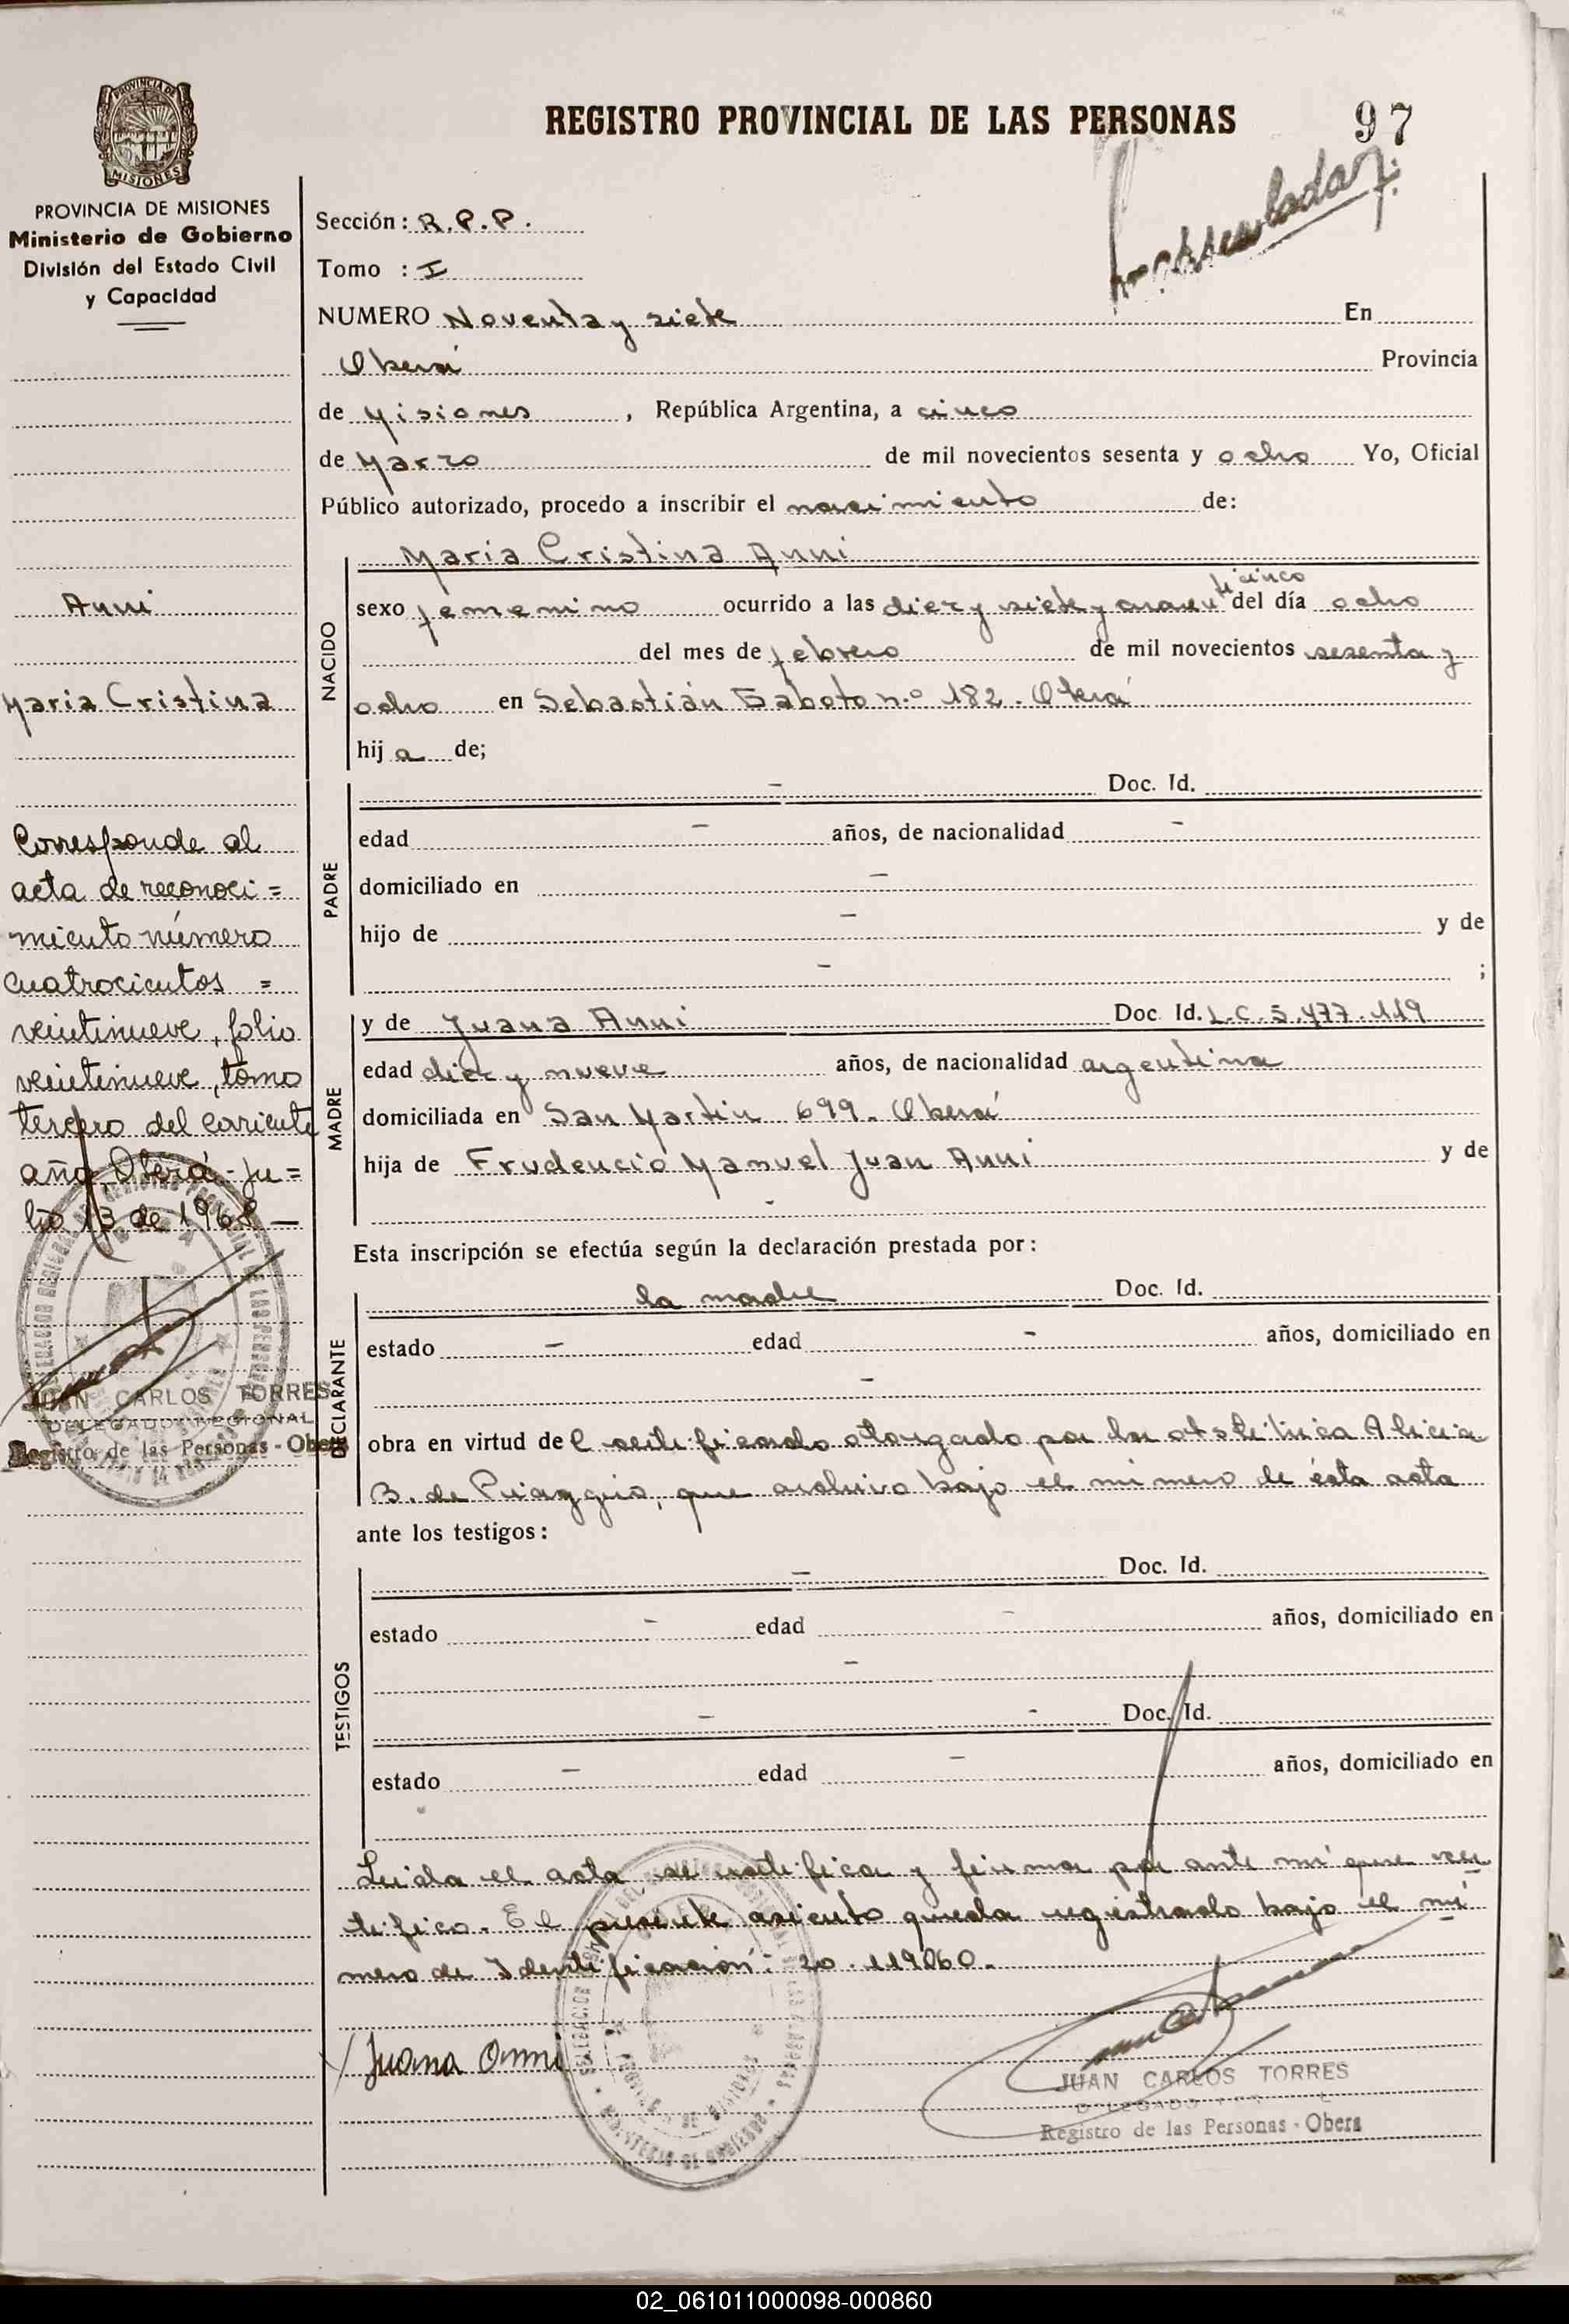 REGISTRO PROVINCIAL DE LAS PERSONAS 97
MISIONES
PROVINCIA DE MISIONES
Ministerio de Gobierno
División del Estado Civil
y Capacidad
Anni
Maria Cristina
Corresponde al
acta de reconoci=
miento número
cuatrocientos =
veintinueve, folio
veintinueve, tomo
tercero del corriente
año, Oberá - Ju=
lio 13 de 1968 —
JUAN CARLOS TORRES
DELEGADO REGIONAL
Registro de las Personas - Obera
Sección: R.P.P.
Tomo : I
NUMERO Noventa y siete En
Oberá Provincia
de Misiones, República Argentina, a cinco
de Marzo de mil novecientos sesenta y ocho Yo, Oficial
Público autorizado, procedo a inscribir el nacimiento de:
Maria Cristina Anni
NACIDO
sexo femenino ocurrido a las diez y siete y cuarenti cinco del día ocho
del mes de febrero de mil novecientos sesenta y
ocho en Sebastián Gaboto n.º 182. Oberá
hij a de;
PADRE
- Doc. Id.
edad - años, de nacionalidad -
domiciliado en -
hijo de - y de
- ;
MADRE
y de Juana Anni Doc. Id. L.C. 5.477.119
edad diez y nueve años, de nacionalidad argentina
domiciliada en San Martin 699. Oberá
hija de Prudencio Manuel Juan Anni y de
-
Esta inscripción se efectúa según la declaración prestada por:
DECLARANTE
la madre Doc. Id.
estado - edad - años, domiciliado en
-
obra en virtud del certificado otorgado por la obstétrica Alicia
B. de Piaggio, que archivo bajo el número de ésta acta
ante los testigos:
TESTIGOS
- Doc. Id.
estado - edad - años, domiciliado en
-
- - Doc. Id.
estado - edad - años, domiciliado en
Leída el acta se ratifica y firma por ante mí que cer
tifico. El presente asiento queda registrado bajo el nú
mero de Identificación: 20.119060.
Juana Anni
JUAN CARLOS TORRES
DELEGADO
Registro de las Personas - Obera
02_061011000098-000860